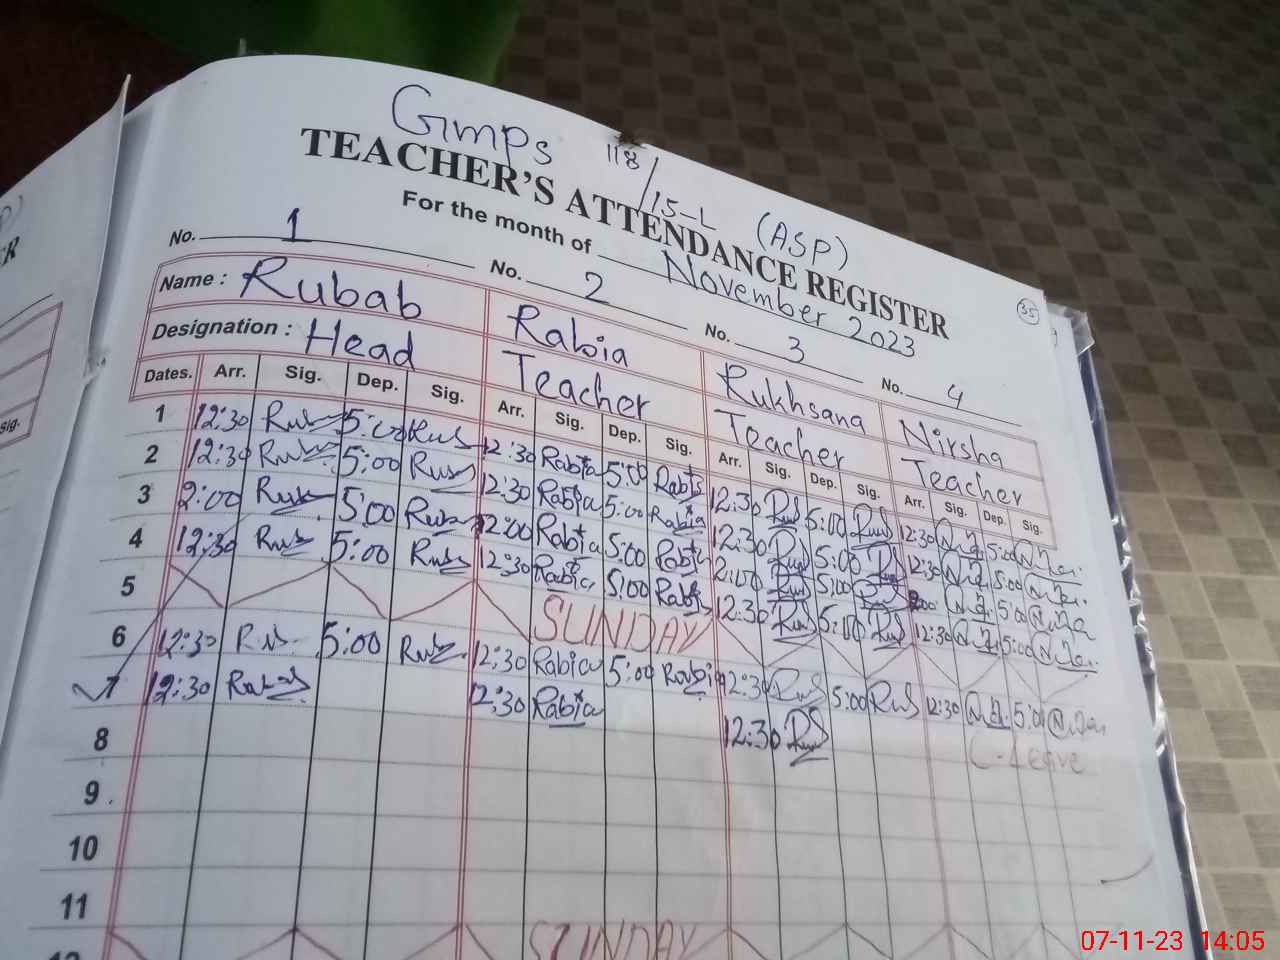 Gmps 118/15-L (ASP)
TEACHER'S ATTENDANCE REGISTER
For the month of November 2023
35
No. 1 No. 2 No. 3 No. 4
Name : Rubab Rabia Rukhsana Nirsha
Designation : Head Teacher Teacher Teacher
Dates. Arr. Sig. Dep. Sig. Arr. Sig. Dep. Sig. Arr. Sig. Dep. Sig. Arr. Sig. Dep. Sig.
1 12:30 Rub 5:00 Rub 12:30 Rabia 5:00 Rabia 12:30 5:00 12:30 5:00
2 12:30 Rub 5:00 Rub 12:30 Rabia 5:00 Rabia 12:30 5:00 12:30 5:00
3 2:00 Rub 5:00 Rub 2:00 Rabia 5:00 Rabia 2:00 5:00 2:00 5:00
4 12:30 Rub 5:00 Rub 12:30 Rabia 5:00 Rabia 12:30 5:00 12:30 5:00
5 SUNDAY
6 12:30 Rub 5:00 Rub 12:30 Rabia 5:00 Rabia 12:30 5:00 12:30 5:00
7 12:30 12:30 Rabia 12:30 C-Leave
8
9
10
11
12 SUNDAY
Sig.
07-11-23 14:05